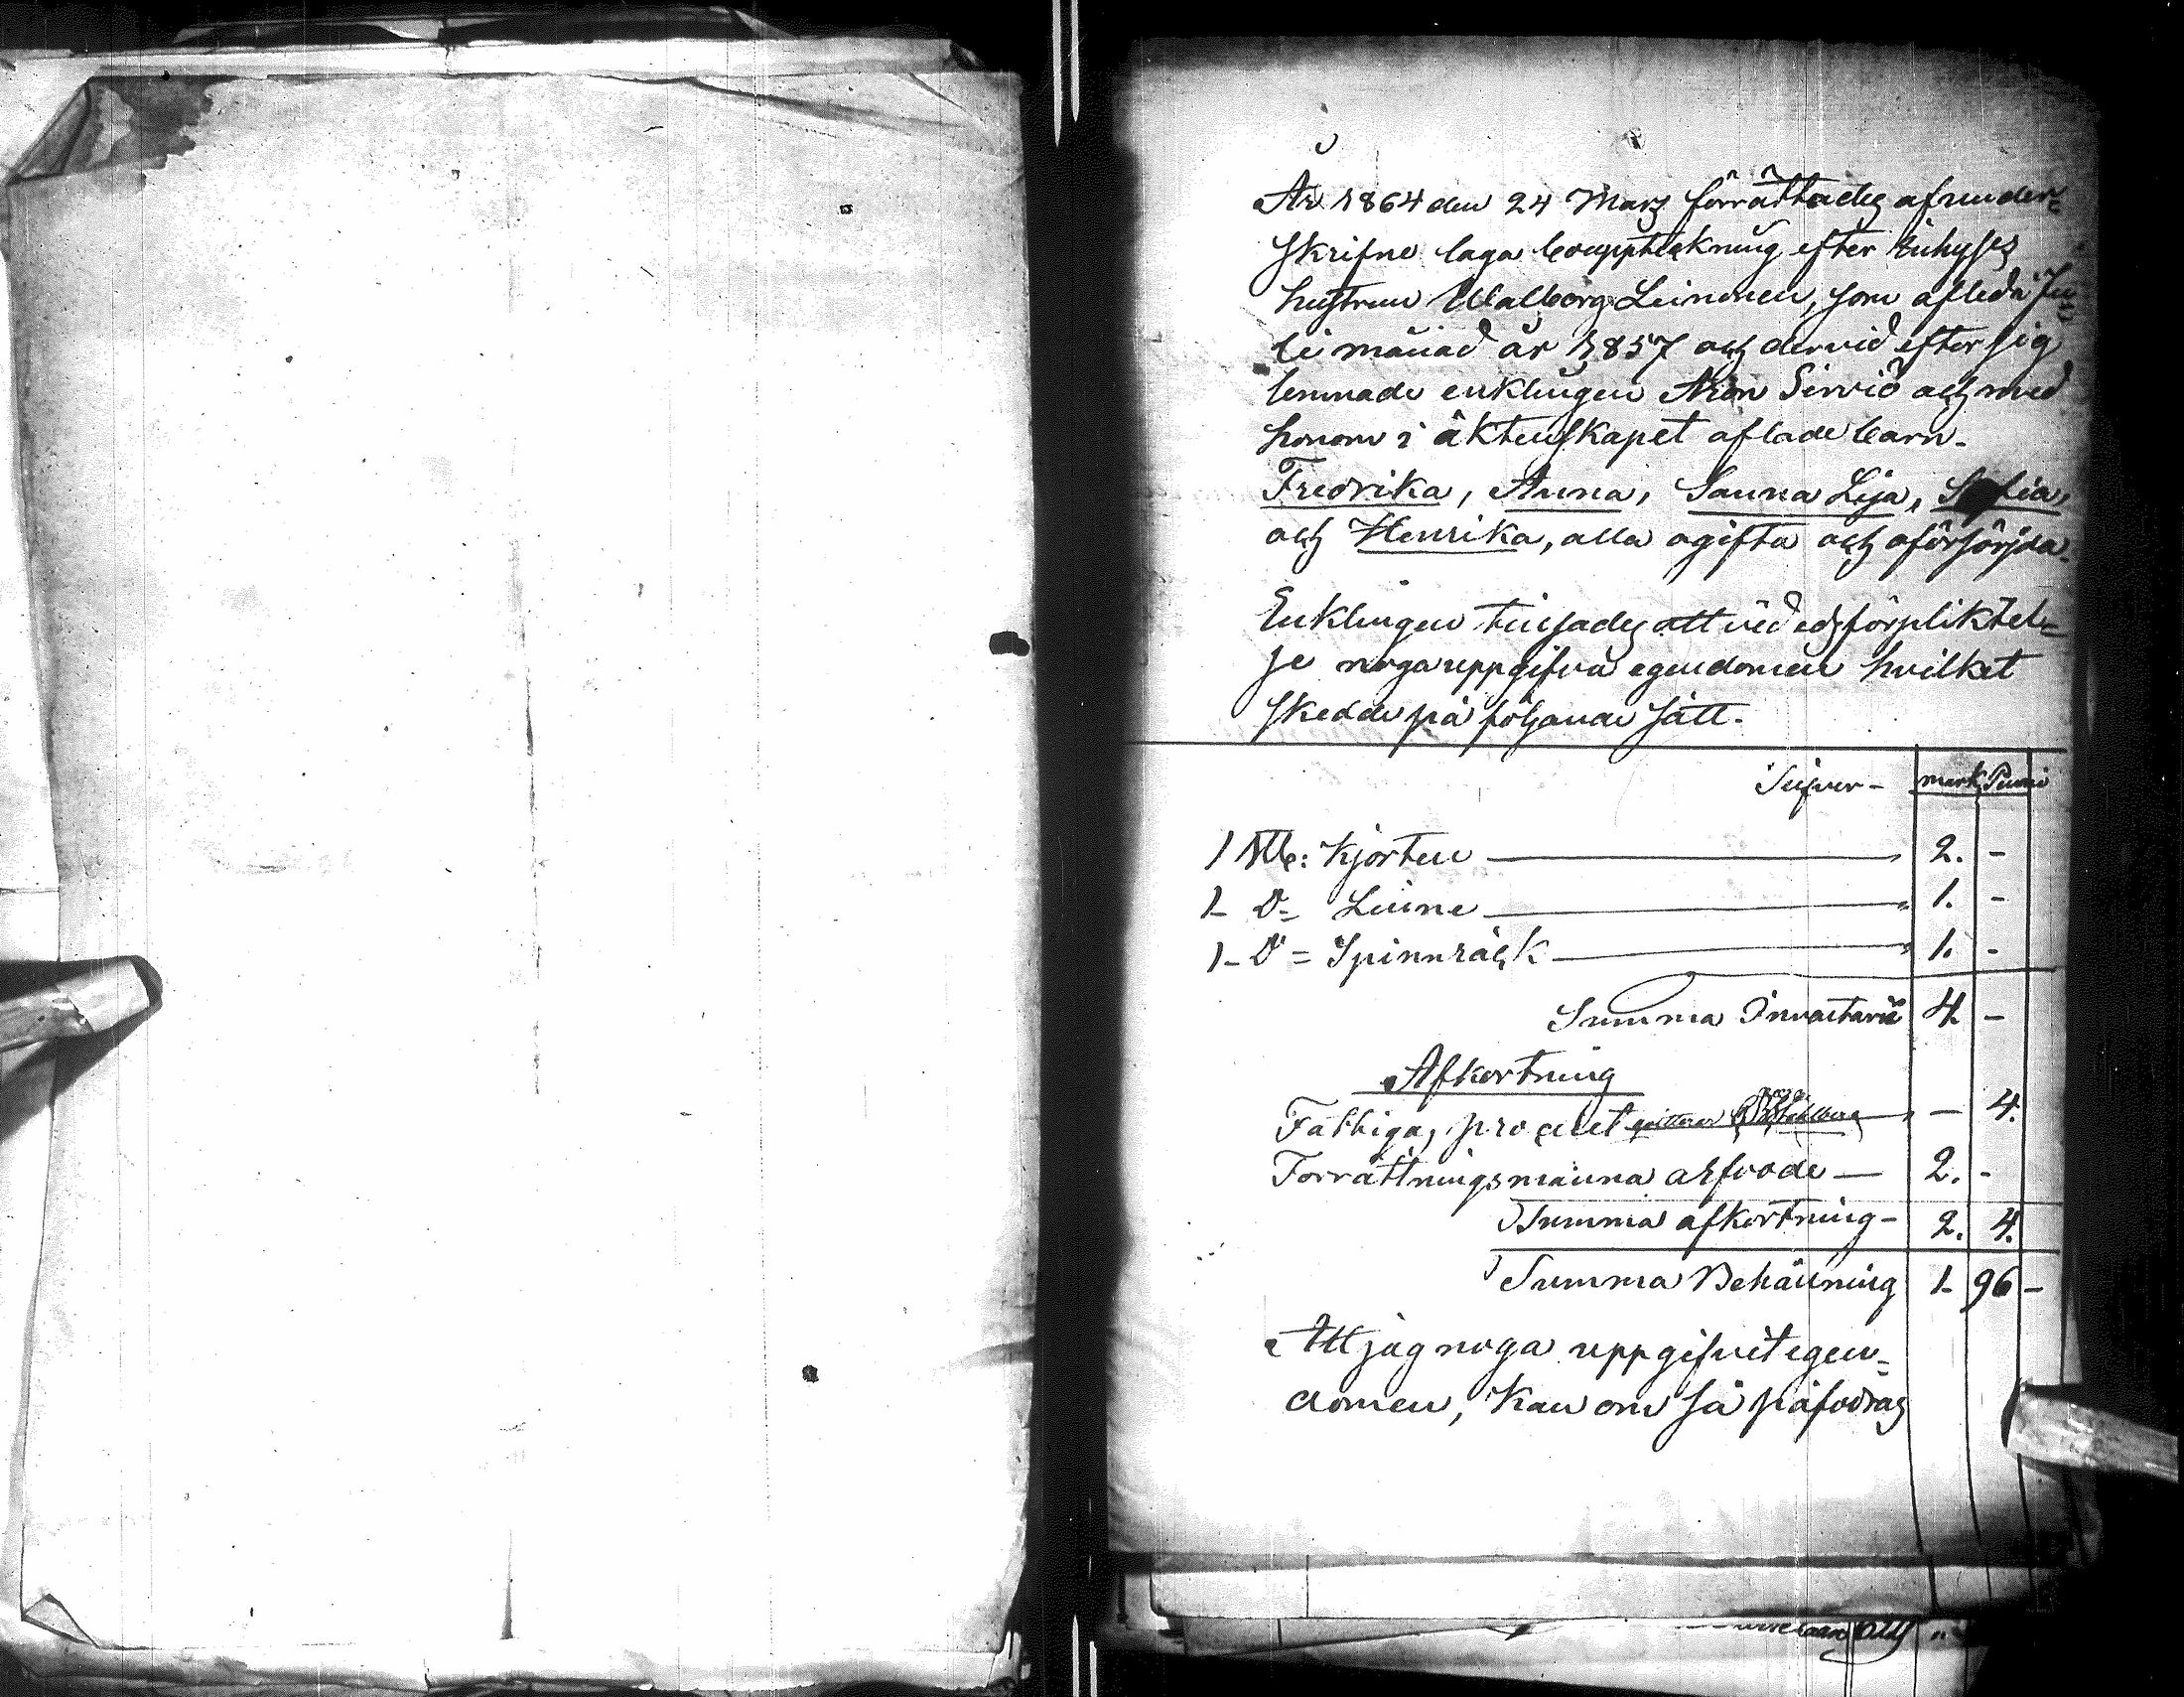 År 1864 den 24 Mars förrättades af under-
skrifne laga bouppteckning efter Inhyses
hustrun Walborg Leinonen, som afled i Ju-
li månad år 1857 och dervid efter sig
lemnade enklingen Aron Sirviö och med
honom i äktenskapet aflade barn.
Fredrika, Anna, Sanna Lisa, Sofia,
och Henrika, alla ogifta och oförsörjda.
Enklingen tillsades att vid edsförpliktel=
se noga uppgifva egendomen hvilket
skedde på följande sätt.
Silfver - mark Penni
1 St: Kjorten — 2. -
1 - D= Linne — 1. -
1 - D = Spinnråck — 1. -
Summa Inventarie 4. -
Afkortning
Fattiga, procent — - 4.
Förrättningsmänna arfvode — 2. -
Summa afkortning - 2. 4.
Summa Behållning 1 - 96 -
Att jag noga uppgifvit egen=
domen, kan om så påfodras